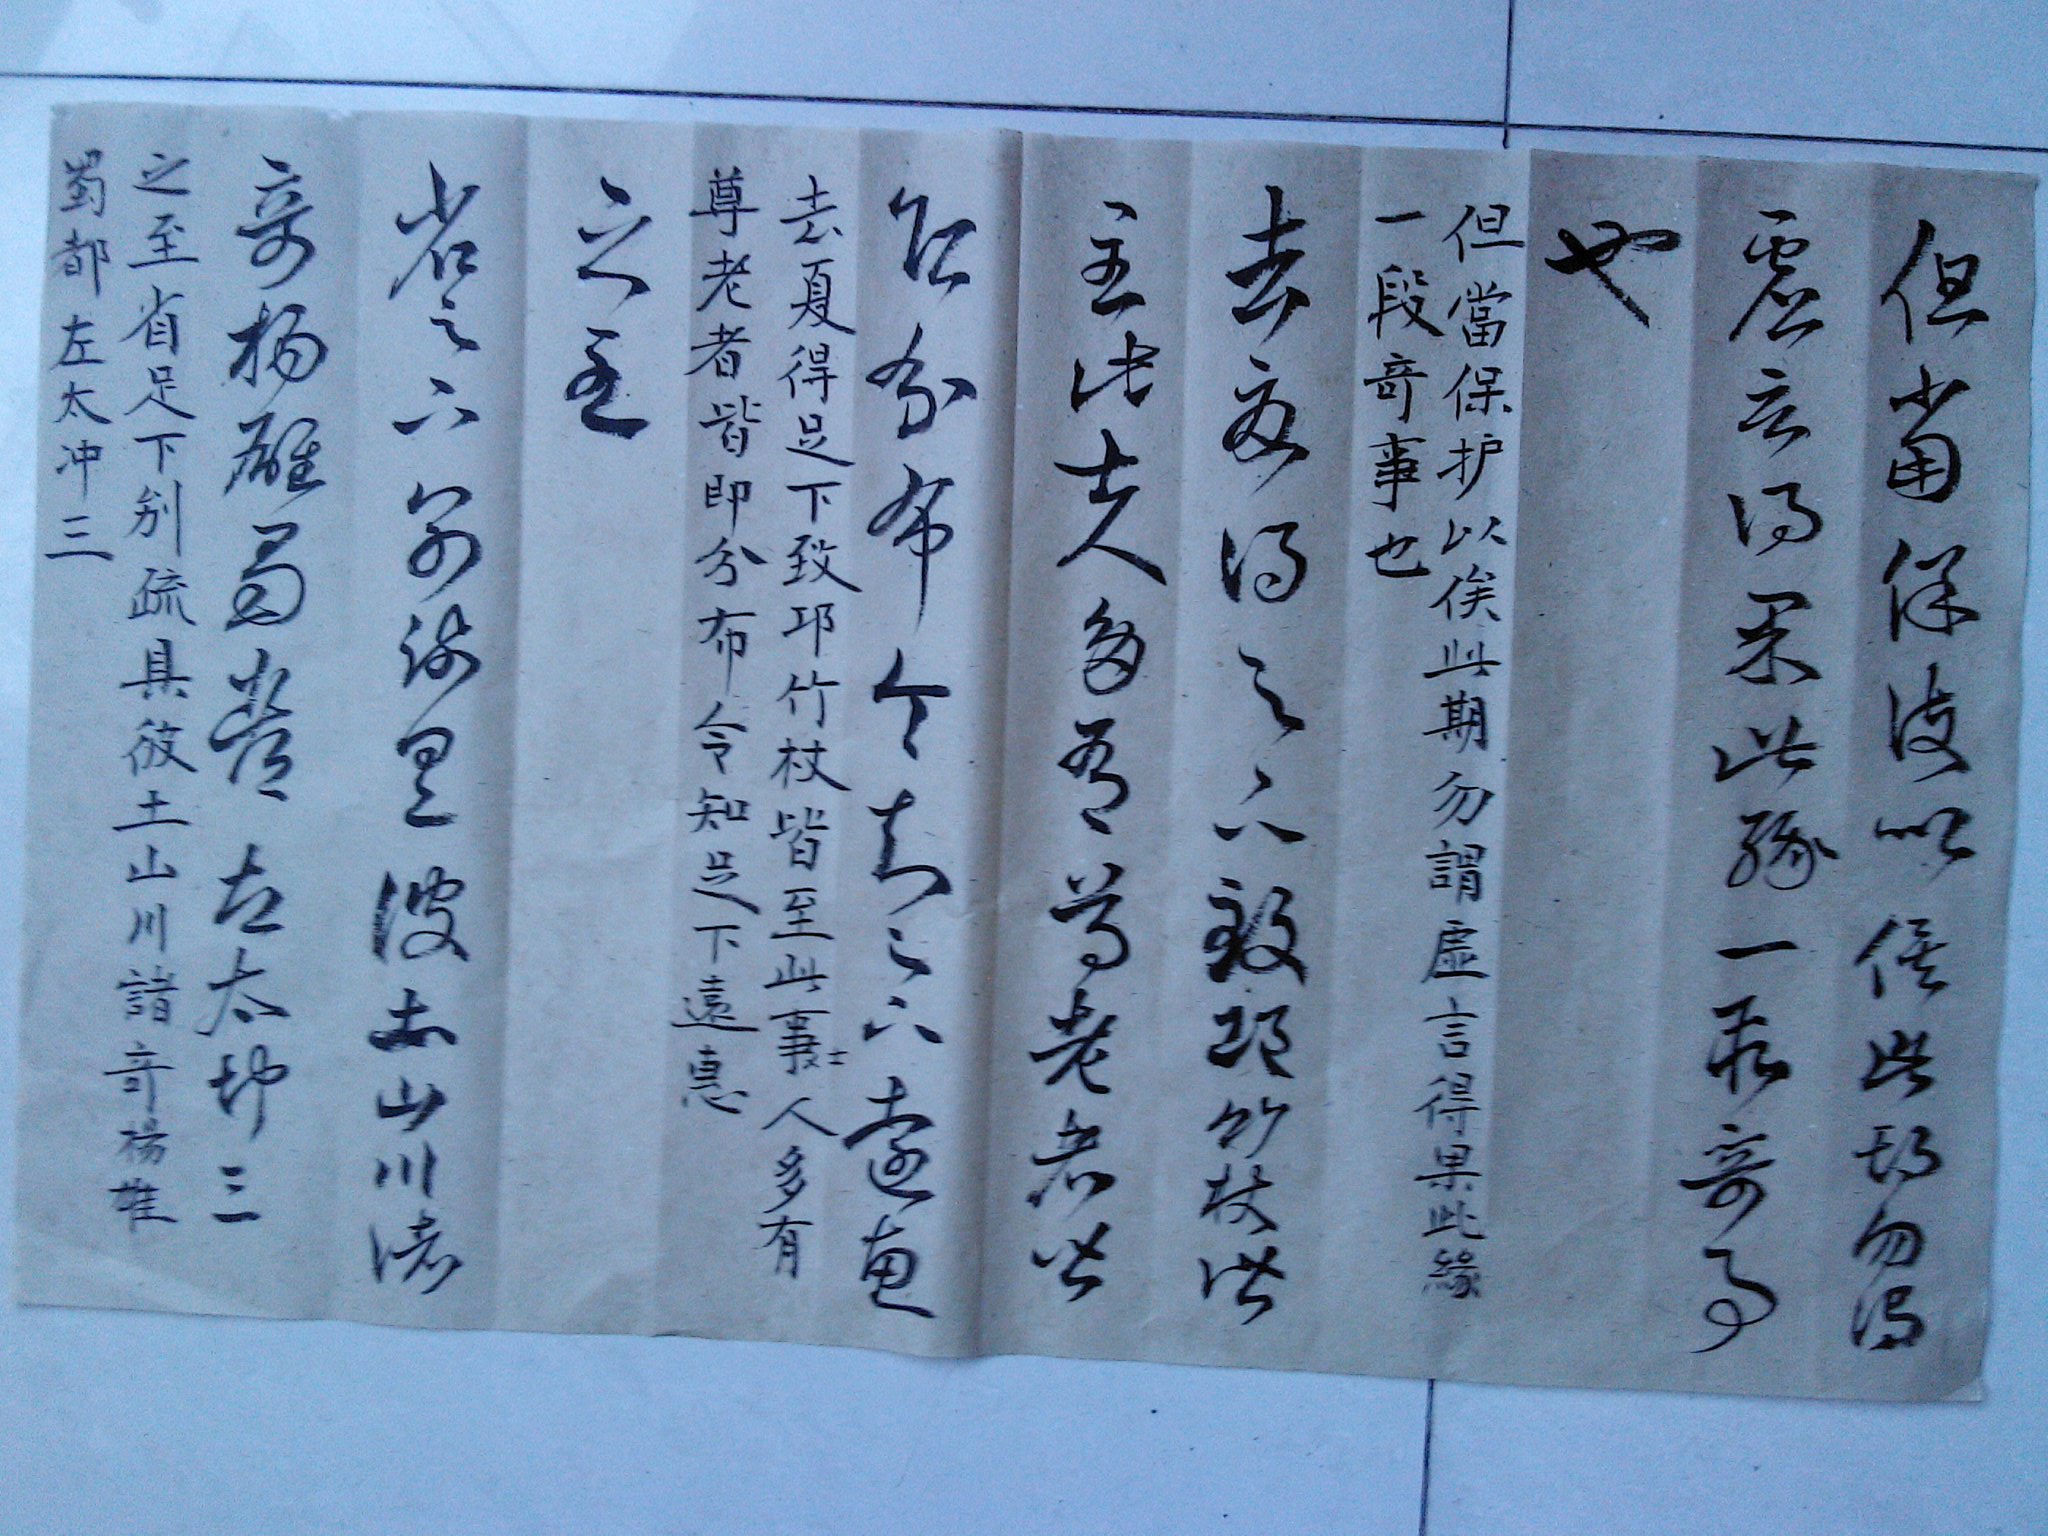 但當保護以俟此期勿謂
虛言得果此緣一段奇事
也
但當保护以俟此期勿謂虛言得果此緣
一段奇事也
去夏得足下致邛竹杖皆
至此士人多有尊老者皆
即分布令知足下遠惠
去夏得足下致邛竹杖皆至此事士人多有
尊老者皆即分布令知足下遠惠
之至
省足下別疏具彼土山川諸
奇揚雄蜀都左太沖三
之至省足下别疏具彼土山川諸奇楊雄
蜀都左太冲三